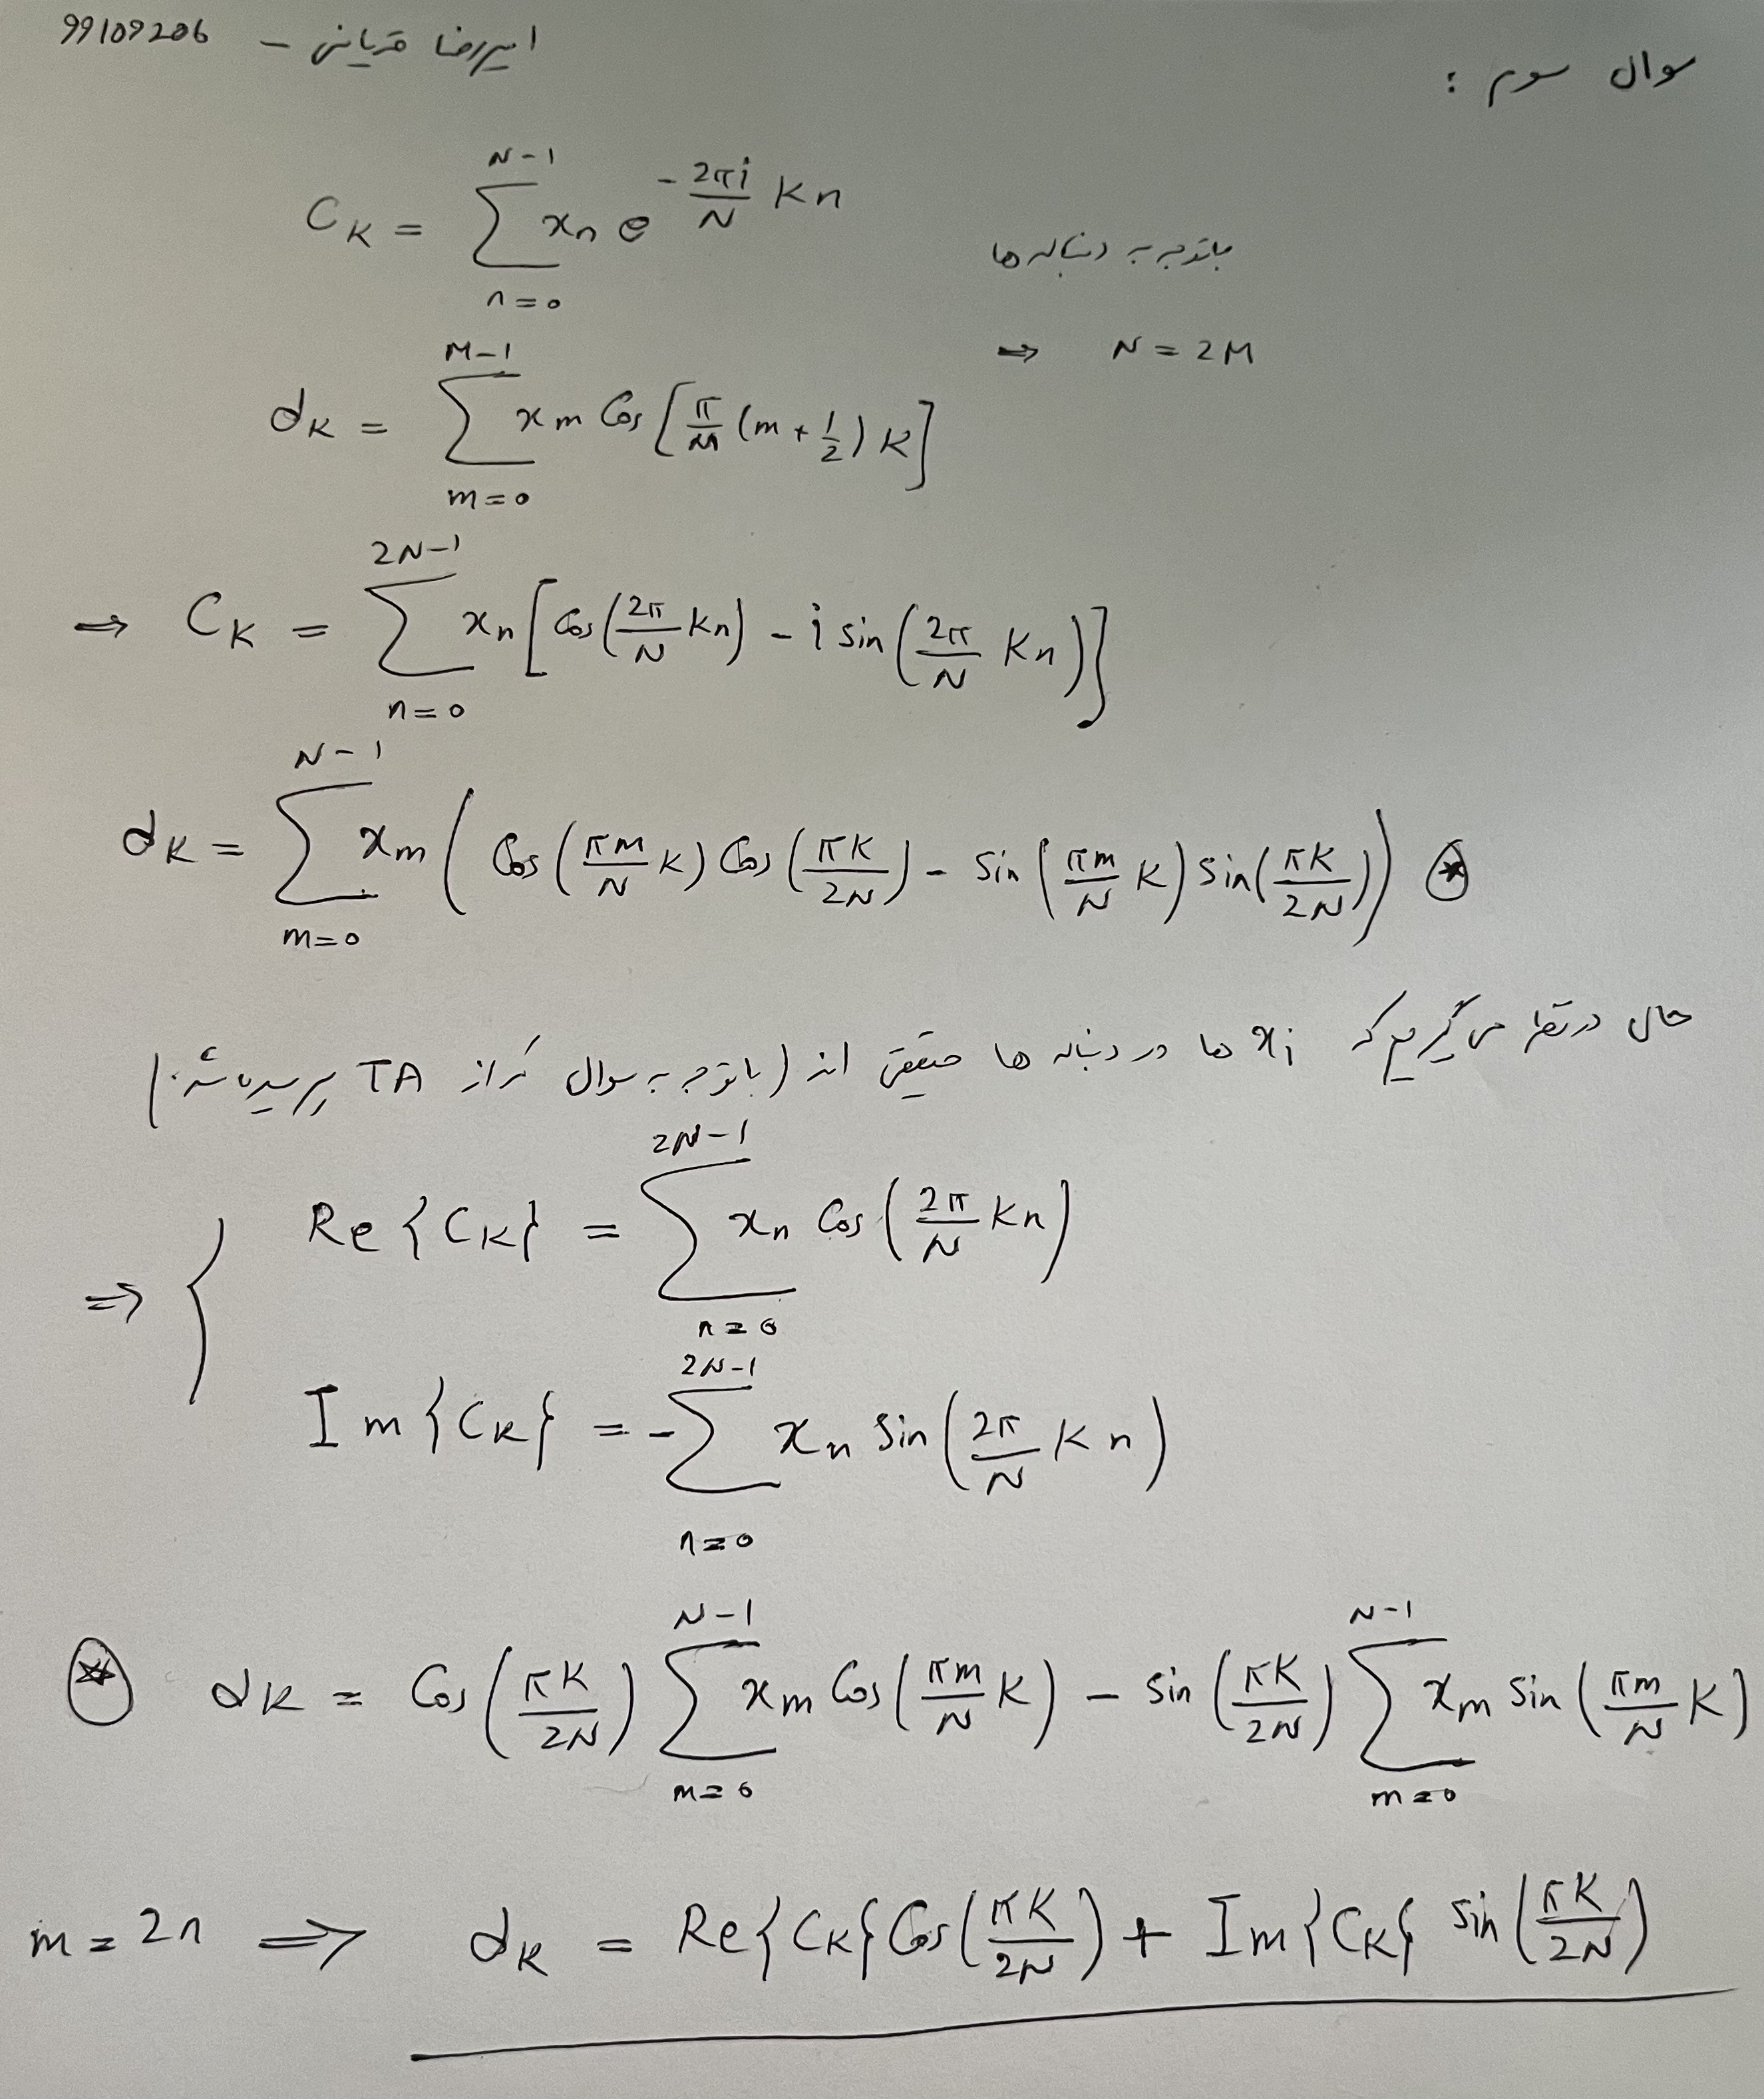 سوال سوم :
امیررضا قربانی - 99109206
C_K = ∑_{n=0}^{N-1} x_n e^{-\frac{2πi}{N} Kn}
باتوجه به دنباله ها
⇒ N = 2M
d_K = ∑_{m=0}^{M-1} x_m Cos[\frac{π}{M}(m + \frac{1}{2})K]
⇒ C_K = ∑_{n=0}^{2N-1} x_n [Cos(\frac{2π}{N} Kn) - i sin(\frac{2π}{N} Kn)]
d_K = ∑_{m=0}^{N-1} x_m (Cos(\frac{πm}{N} K) Cos(\frac{πK}{2N}) - sin(\frac{πm}{N} K) sin(\frac{πK}{2N})) ⊛
حال در نظر می گیریم که x_i ها در دنباله ها حقیقی اند (باتوجه به سوال که از TA پرسیده شد.)
⇒ { Re{C_K} = ∑_{n=0}^{2N-1} x_n Cos(\frac{2π}{N} Kn)
Im{C_K} = -∑_{n=0}^{2N-1} x_n sin(\frac{2π}{N} Kn)
⊛ d_K = Cos(\frac{πK}{2N}) ∑_{m=0}^{N-1} x_m Cos(\frac{πm}{N} K) - sin(\frac{πK}{2N}) ∑_{m=0}^{N-1} x_m sin(\frac{πm}{N} K)
m = 2n ⇒ d_K = Re{C_K} Cos(\frac{πK}{2N}) + Im{C_K} sin(\frac{πK}{2N})